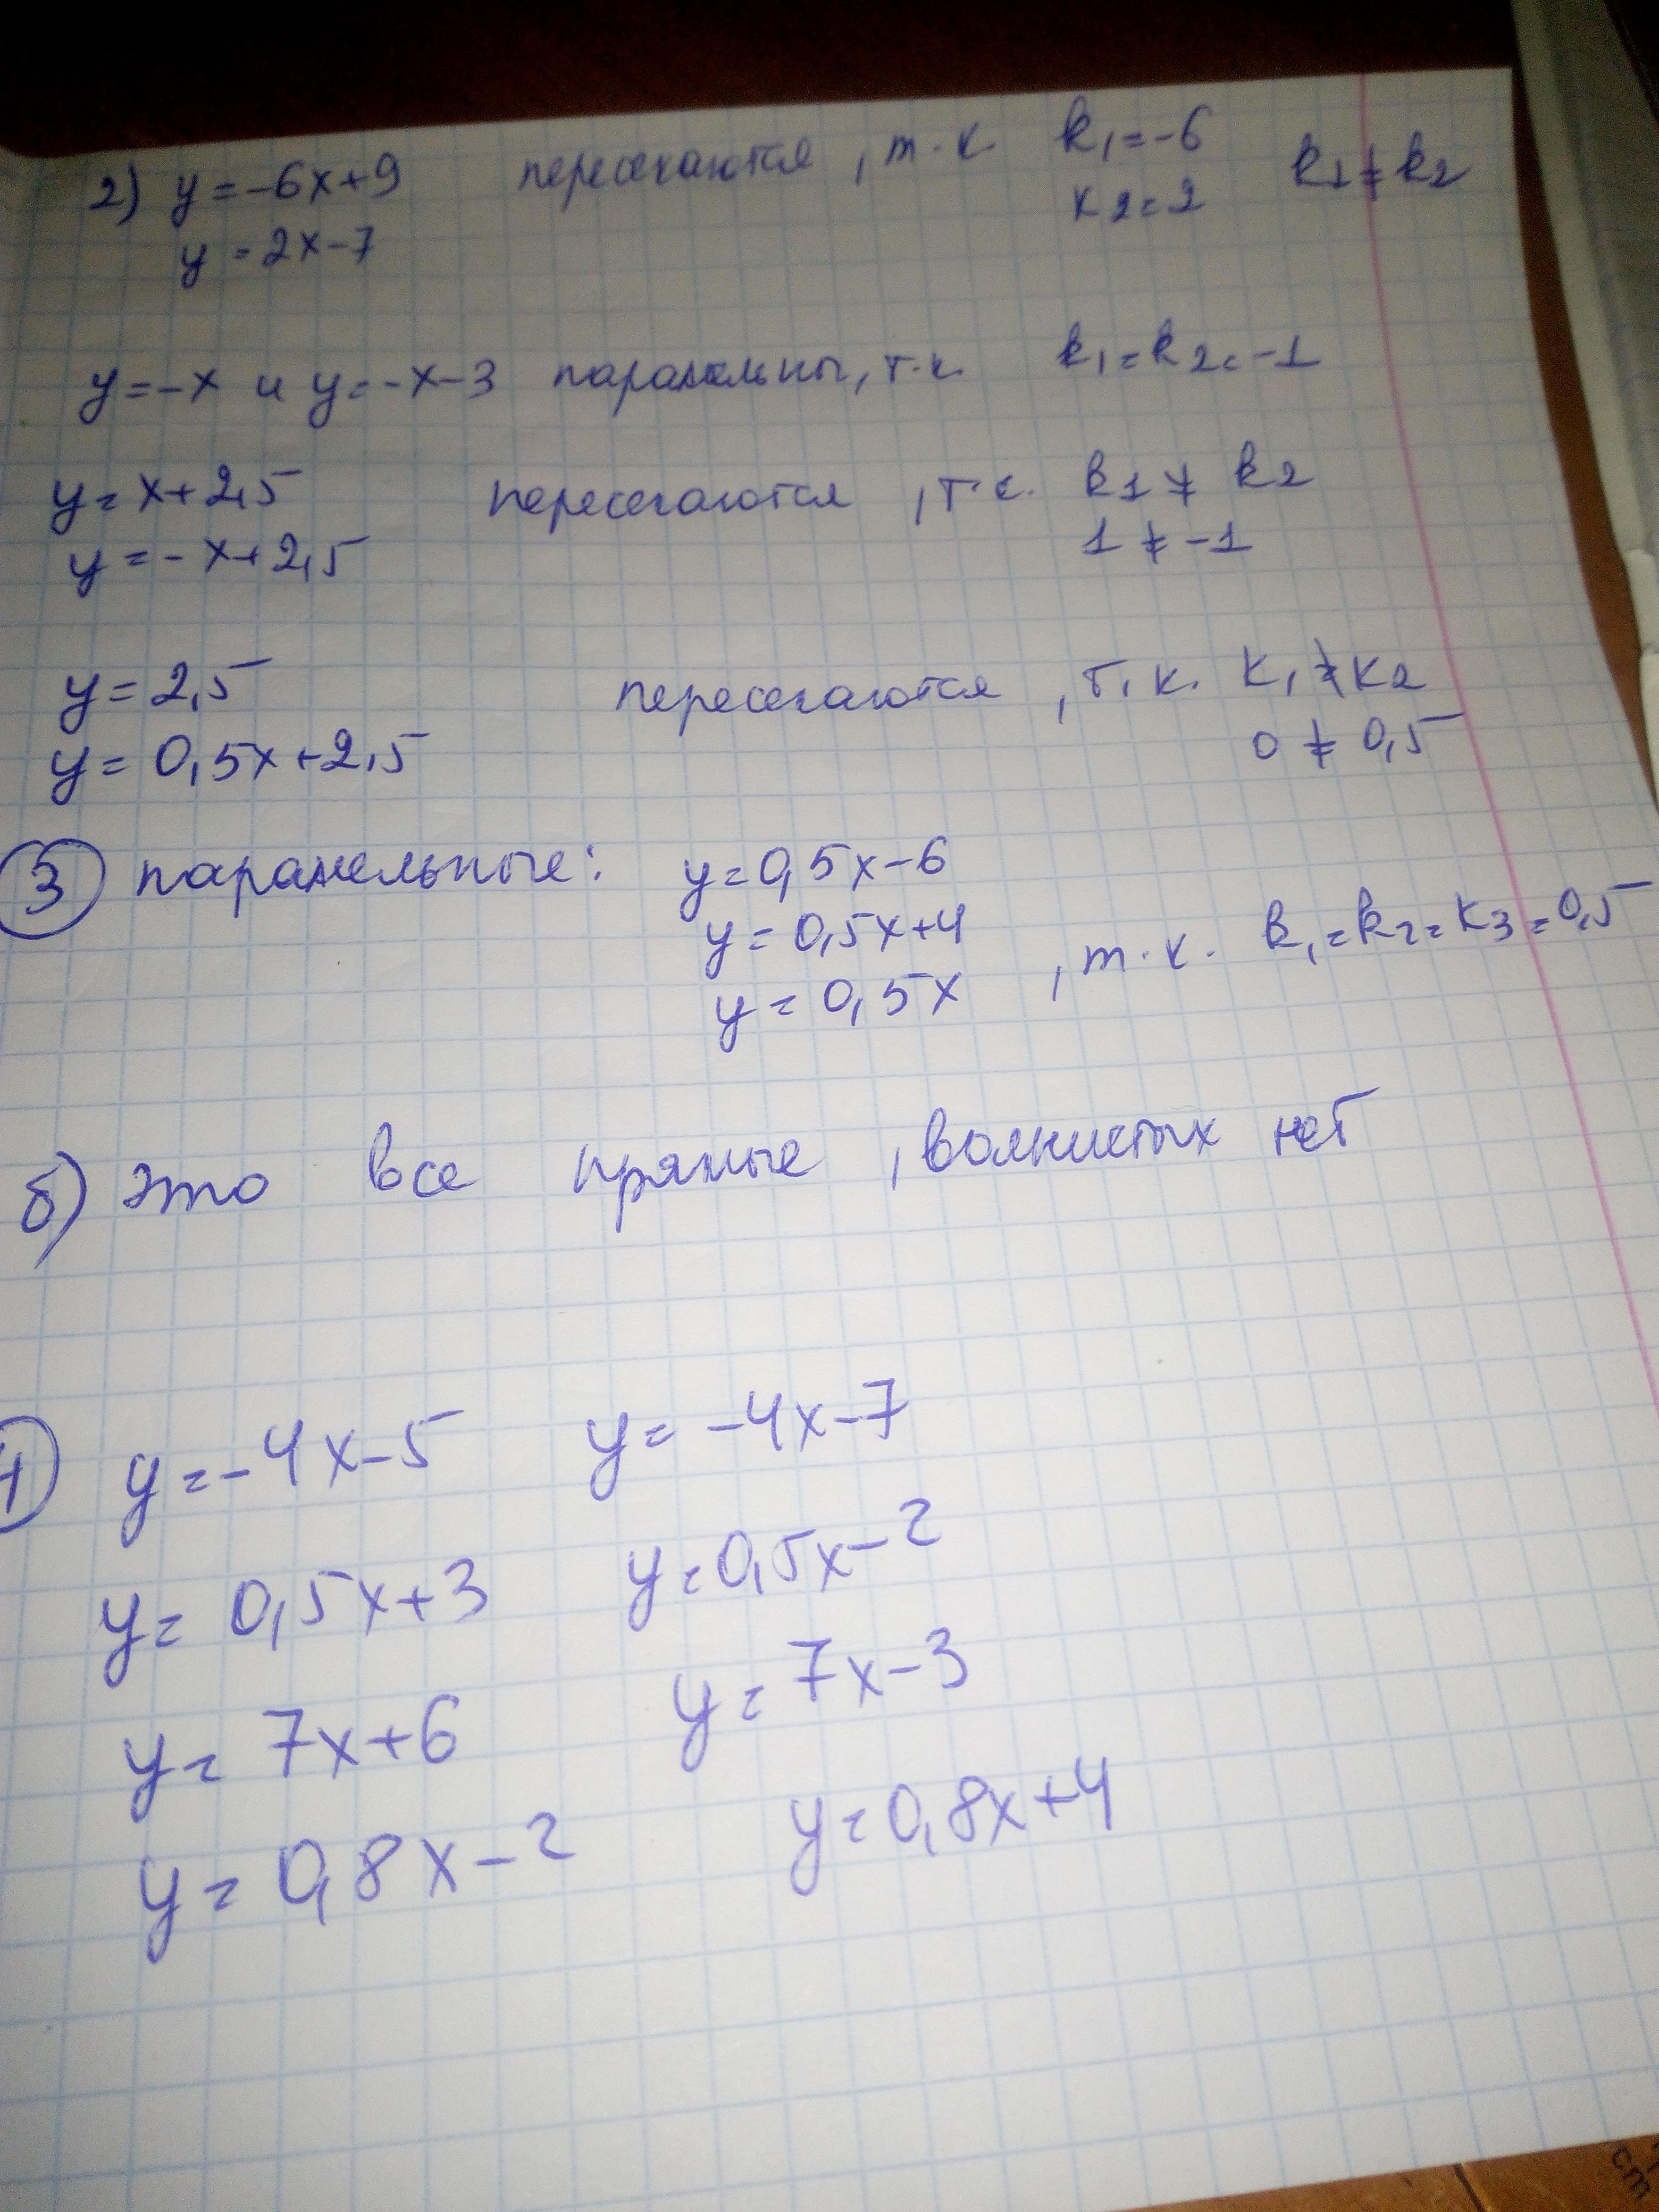 2) y=-6x+9 пересекаются, т.к. k₁=-6 k1≠k2
y=2x-7 k2=2
y=-x и y=-x-3 паралельны, т.к. k₁=k2=-1
y=x+2,5 пересекаются, т.к. k1≠k2
y=-x+2,5 1≠-1
y=2,5 пересекаются, т.к. k₁≠k2
y=0,5x+2,5 0≠0,5
3 паралельные: y=0,5x-6
y=0,5x+4
y=0,5x , т.к. k₁=k2=k3=0,5
б) это все прямые, волнистых нет
y=-4x-5 y=-4x-7
y=0,5x+3 y=0,5x-2
y=7x+6 y=7x-3
y=0,8x-2 y=0,8x+4
cm